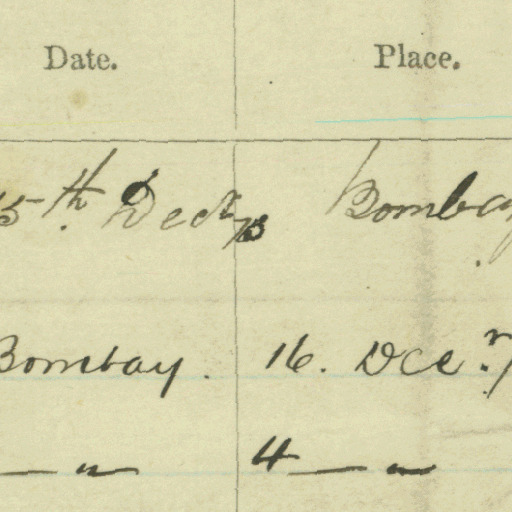 Date. Place.
15th. Decr/73 Bombay
Bombay. 16. Decr.
— " — 4 — " —